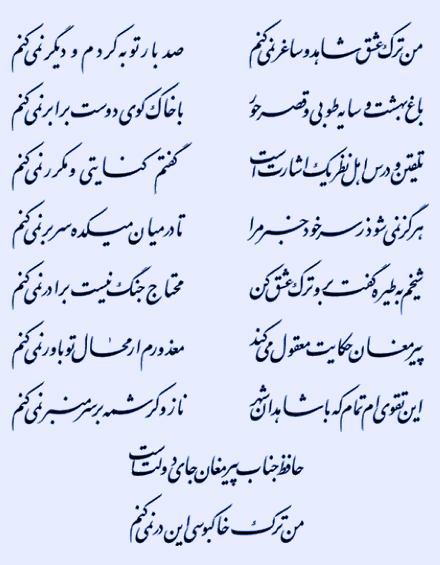 من ترک عشق شاهد و ساغر نمی‌کنم صد بار توبه کردم و دیگر نمی‌کنم
باغ بهشت و سایه طوبی و قصر حور با خاک کوی دوست برابر نمی‌کنم
تلقین و درس اهل نظر یک اشارت است گفتم کنایتی و مکرر نمی‌کنم
هرگز نمی‌شود ز سر خود خبر مرا تا در میان میکده سر بر نمی‌کنم
شیخم به طیره گفت برو ترک عشق کن محتاج جنگ نیست برادر نمی‌کنم
پیر مغان حکایت معقول می‌کند معذورم ار محال تو باور نمی‌کنم
این تقوی‌ام تمام که با شاهدان شهر ناز و کرشمه بر سر منبر نمی‌کنم
حافظ جناب پیر مغان جای دولت است
من ترک خاکبوسی این در نمی‌کنم